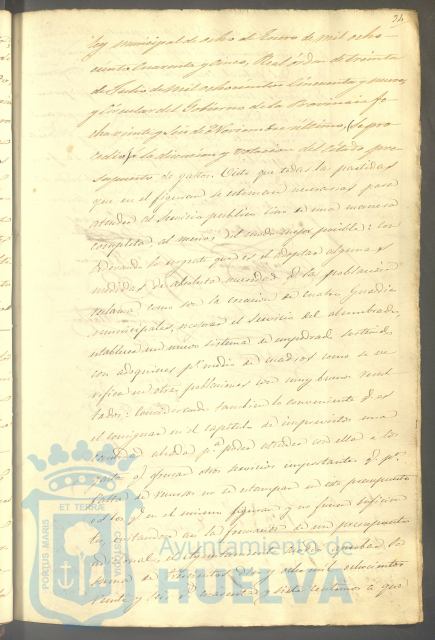 34
Ley municipal de ocho de Enero de mil ocho-
cientos Cuarenta y cinco, Real orden de treinta
de Julio de Mil ochocientos Cincuenta y nueve,
y Circular del Gobierno de la Provincia fe-
cha veinte y seis de Noviembre último, Se pro-
cedió a la discusion y votacion del citado pre-
supuesto de gastos. Visto que todas las partidas
que en él figuran se estiman necesarias para
atender al servicio publico sino de una manera
completa, al menos del modo mejor posible: Con-
siderando lo urgente que es el adoptar algunas
medidas de absoluta necesidad de la poblacion
como son la creacion de cuatro Guardias
municipales, mejorar el servicio del alumbrado,
establecer un nuevo sistema de empedrado
con adoquines pr. medio de cuadros como se ve-
rifica en otras poblaciones con muy buenos resul-
tados: Considerando tambien lo conveniente q. es
el consignar en el capitulo de imprevistos una
cantidad alzada pa. poder atender con ella a los
gastos q. ofrecen otros servicios importantes q. pr.
falta de recursos no se estampan en este presupuesto
los q. en el mismo figuran y no fueran suficien
tes, evitando asi la formacion de un presupuesto
adicional,
suma de
veinte y seis
PORTUS MARIS
ET TERRÆ
CUSTODIA
Ayuntamiento de
HUELVA